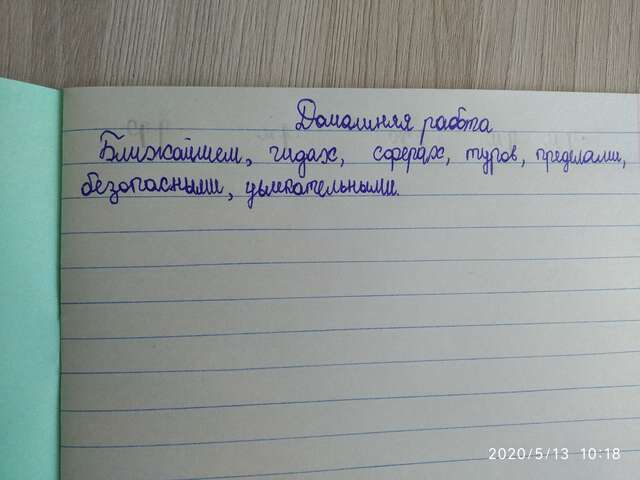 Домашняя работа
Ближайшем, гидах, сферах, туров, пределами,
безопасными, увлекательными.
2020/5/13 10:18